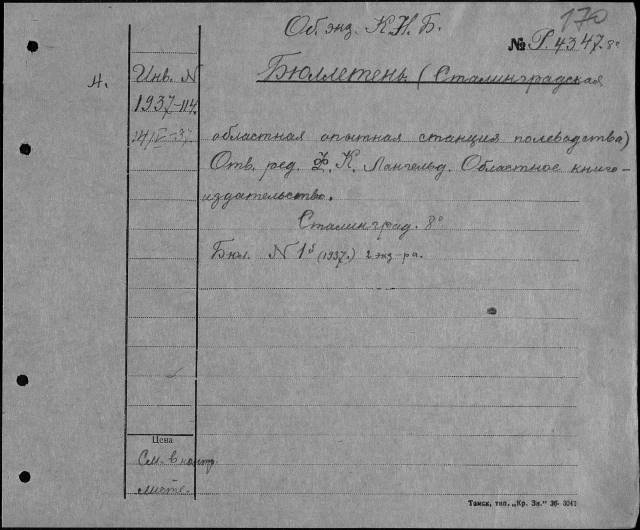 170
Об. экз. К.Н.Б.
№ Р. 4347. 8°
Инв. N
Бюллетень (Сталинградская
4.
1937-114.
14/IV-37.
областная опытная станция полеводства)
Отв. ред. Ф. К. Лангельд. Областное книго-
издательство.
Сталинград. 8°
Бюл. N 1 (1937.) 2 экз-ра.
Цена
См. в
листе.
Томск, тип. „Кр. Зн." 36- 3041